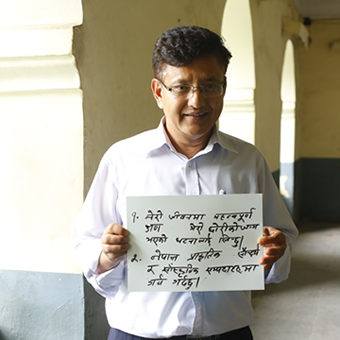 १. मेरो जीवनमा महत्वपूर्ण
क्षण मेरो छोरीको जन्म
भएको घटनालाई लिन्छु।
२. नेपाल प्राकृतिक सौन्दर्य
र सांस्कृतिक सम्पदाहरुमा
गर्व गर्दछु।